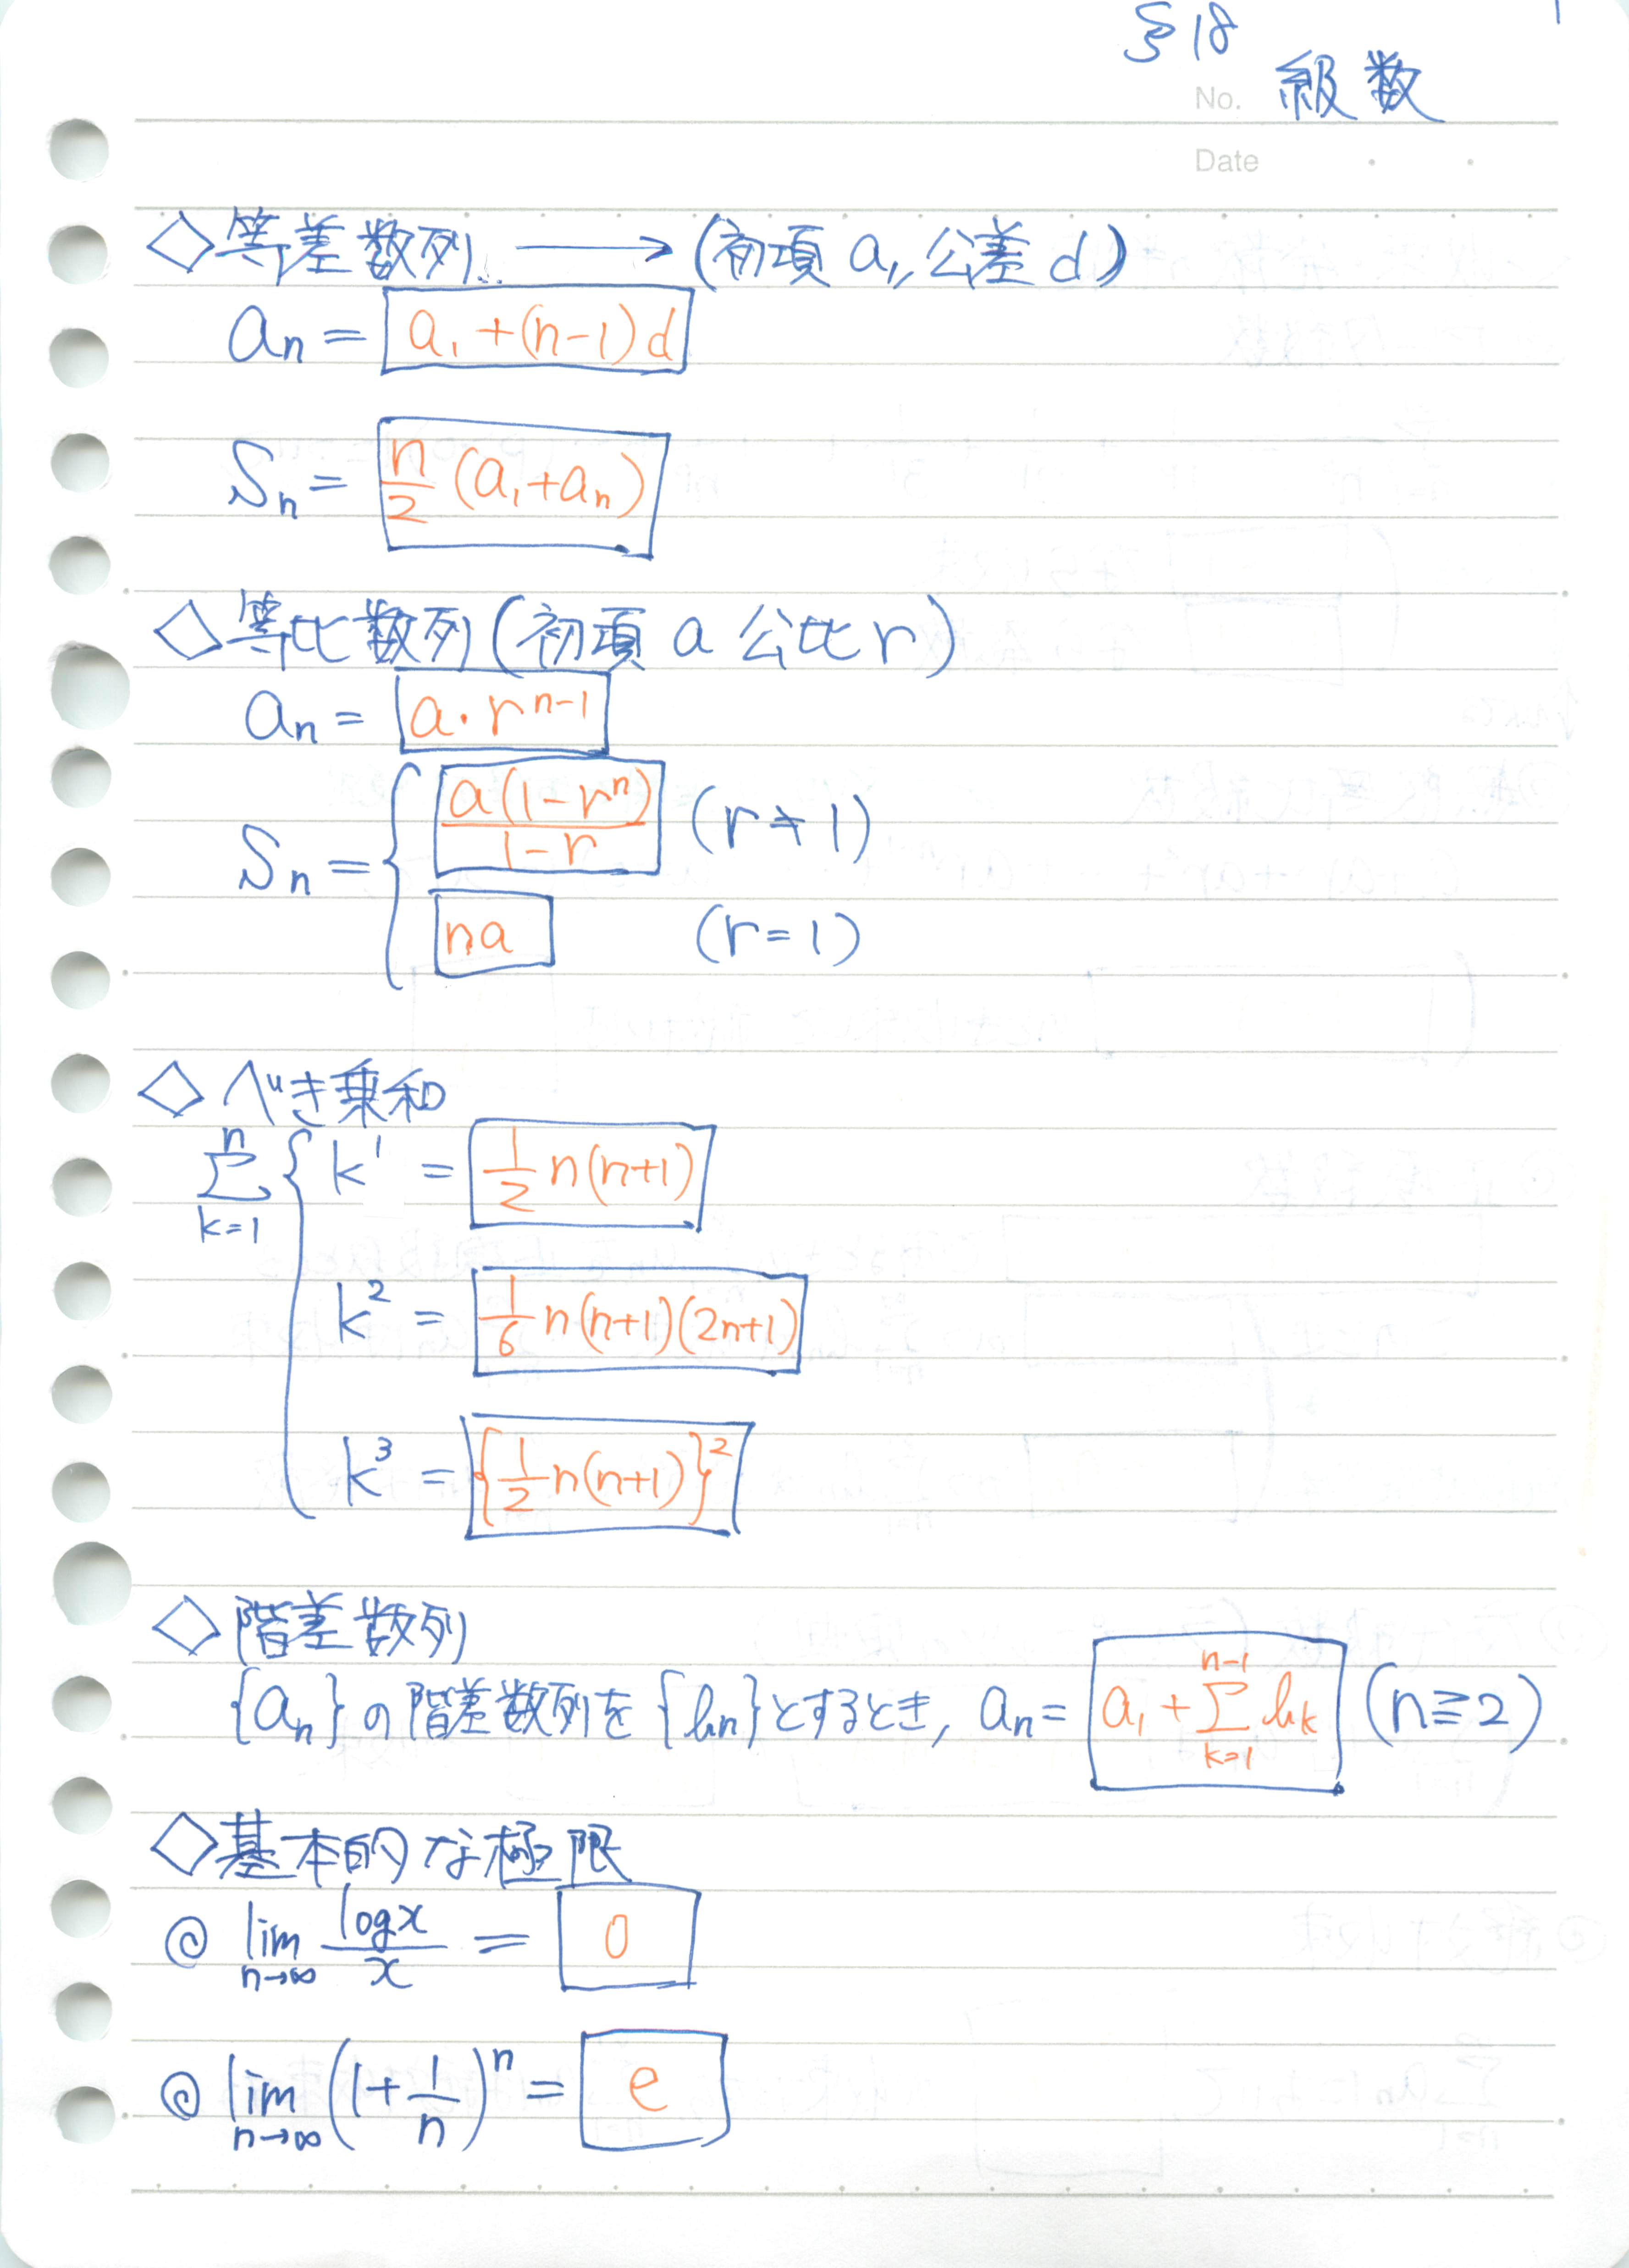 §18
1
No. 級数
Date
◇等差数列 → (初項 a₁, 公差 d)
aₙ = a₁+(n-1)d
Sₙ = n/2 (a₁+aₙ)
◇等比数列(初項 a 公比 r)
aₙ = a・rⁿ⁻¹
Sₙ = { a(1-rⁿ)/(1-r) (r≠1)
na (r=1)
◇べき乗和
Σ_{k=1}^{n} { k¹ = 1/2 n(n+1)
k² = 1/6 n(n+1)(2n+1)
k³ = {1/2 n(n+1)}²
◇階差数列
{aₙ}の階差数列を{bₙ}とするとき, aₙ = a₁ + Σ_{k=1}^{n-1} bₖ (n≧2)
◇基本的な極限
◎ lim_{n→∞} logx/x = 0
◎ lim_{n→∞} (1+1/n)ⁿ = e